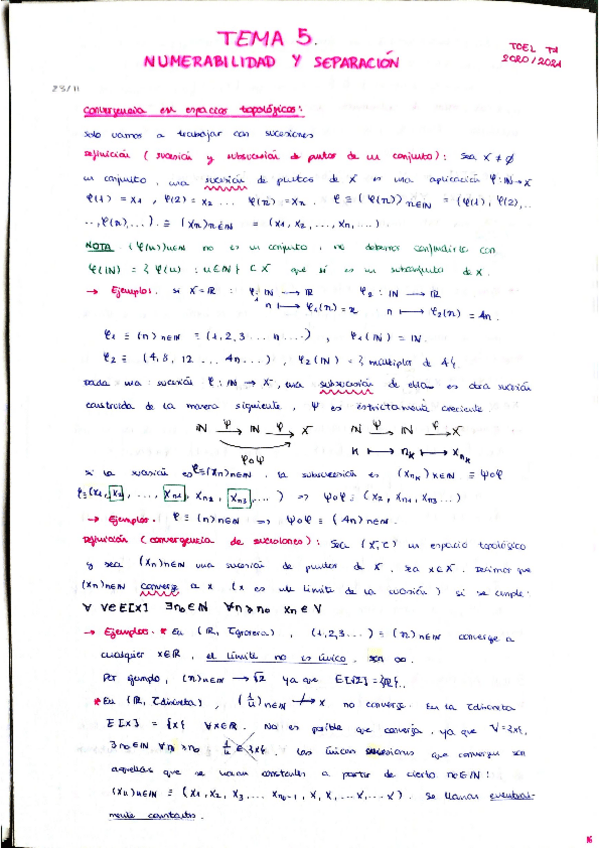 TEMA 5.
NUMERABILIDAD Y SEPARACIÓN
TOEL T1
2020/2021
23/11
Convergencia en espacios topológicos:
Solo vamos a trabajar con sucesiones
Definición (sucesión y subsucesión de puntos de un conjunto): Sea X ≠ ∅
un conjunto, una sucesión de puntos de X es una aplicación φ: ℕ→X
φ(1) = x₁, φ(2) = x₂ ... φ(n) = xₙ. φ ≡ (φ(n))ₙ∈ℕ = (φ(1), φ(2), ..
.., φ(n), ...) ≡ (xₙ)ₙ∈ℕ = (x₁, x₂, ..., xₙ, ...)
NOTA (φ(n))ₙ∈ℕ no es un conjunto, no debemos confundirlo con
φ(ℕ) = {φ(n) : n∈ℕ} ⊂ X que sí es un subconjunto de X.
→ Ejemplos. si X=ℝ : φ₁: ℕ → ℝ φ₂: ℕ → ℝ
n ⟼ φ₁(n) = n n ⟼ φ₂(n) = 4n.
φ₁ ≡ (n)ₙ∈ℕ ≡ (1, 2, 3 ... n ...), φ₁(ℕ) = ℕ.
φ₂ ≡ (4, 8, 12 ... 4n ...), φ₂(ℕ) = {múltiplos de 4}.
Dada una sucesión φ: ℕ → X, una subsucesión de ella es otra sucesión
construida de la manera siguiente, Ψ es estrictamente creciente.
ℕ —Ψ→ ℕ —φ→ X ℕ —Ψ→ ℕ —φ→ X
φ∘Ψ k ⟼ nₖ ⟼ xₙₖ
si la sucesión es φ≡(xₙ)ₙ∈ℕ, la subsucesión es (xₙₖ)ₖ∈ℕ ≡ Ψ∘φ
φ≡(x₁, x₂, ..., xₙ₁, xₙ₂, xₙ₃, ...) => Ψ∘φ ≡ (x₂, xₙ₁, xₙ₃ ...)
→ Ejemplos. φ ≡ (n)ₙ∈ℕ => Ψ∘φ ≡ (4n)ₙ∈ℕ.
Definición (convergencia de sucesiones): Sea (X, τ) un espacio topológico
y sea (xₙ)ₙ∈ℕ una sucesión de puntos de X. Sea x∈X. Decimos que
(xₙ)ₙ∈ℕ converge a x (x es un límite de la sucesión) si se cumple:
∀ V∈E[x] ∃n₀∈ℕ ∀n≥n₀ xₙ∈V
→ Ejemplos. * En (ℝ, τgrosera), (1,2,3...) = (n)ₙ∈ℕ converge a
cualquier x∈ℝ, el límite no es único, son ∞.
Por ejemplo, (n)ₙ∈ℕ → √2 ya que E[√2] = {ℝ}.
* En (ℝ, τdiscreta), (1/n)ₙ∈ℕ ↛ x no converge. En la τdiscreta
E[x] = {x} ∀x∈ℝ. No es posible que converja, ya que V={x},
∃n₀∈ℕ ∀n≥n₀ 1/n ∈ {x}. Las únicas sucesiones que convergen son
aquellas que se vuelven constantes a partir de cierto n₀∈ℕ:
(xₙ)ₙ∈ℕ ≡ (x₁, x₂, x₃ ... xₙ₀₋₁, x, x, ... x, ... x). Se llaman eventual-
mente constantes.
16